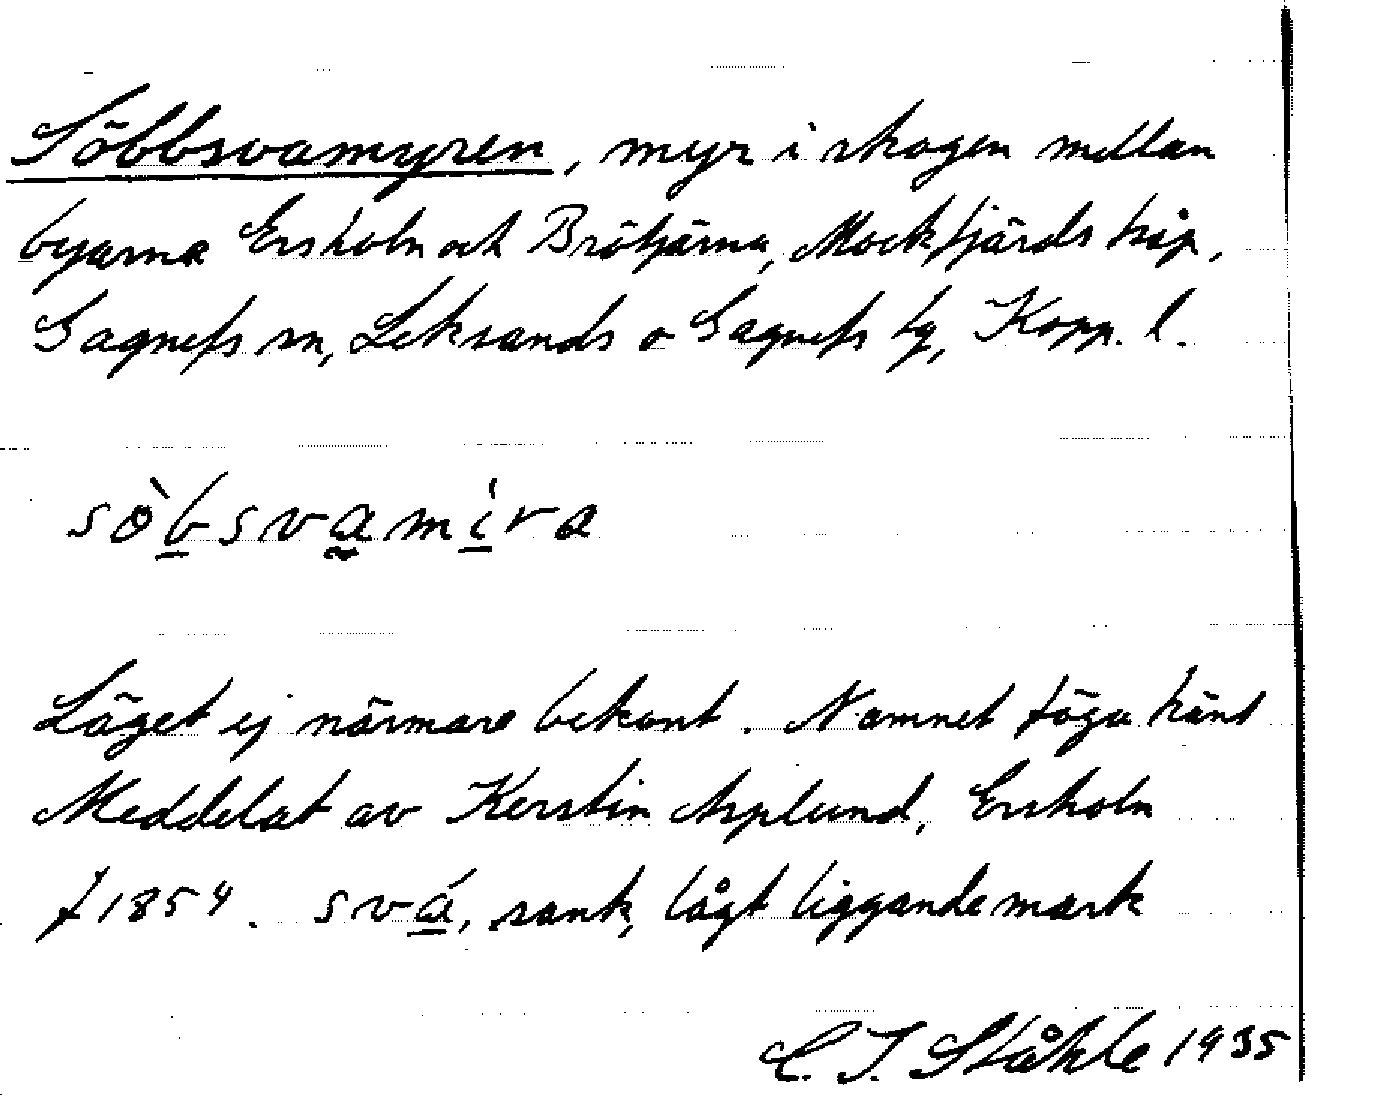 Söbbsvamyren, myr i skogen mellan
byarna Ersholn och Brötjärna, Mockfjärds kåp,
Gagnefs sn, Leksands o Gagnefs tg, Kopp. l.
sòbsvamíra
Läget ej närmare bekant. Namnet föga känt
Meddelat av Kerstin Asplund, Ersholn
f 1854. svá, sank, lågt liggande mark
C. I. Ståhle 1935